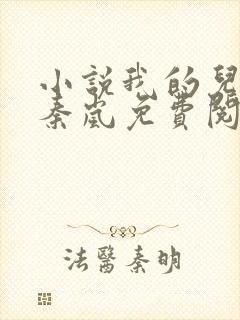 小說我的兒
秦嵐免費閱
法醫秦明